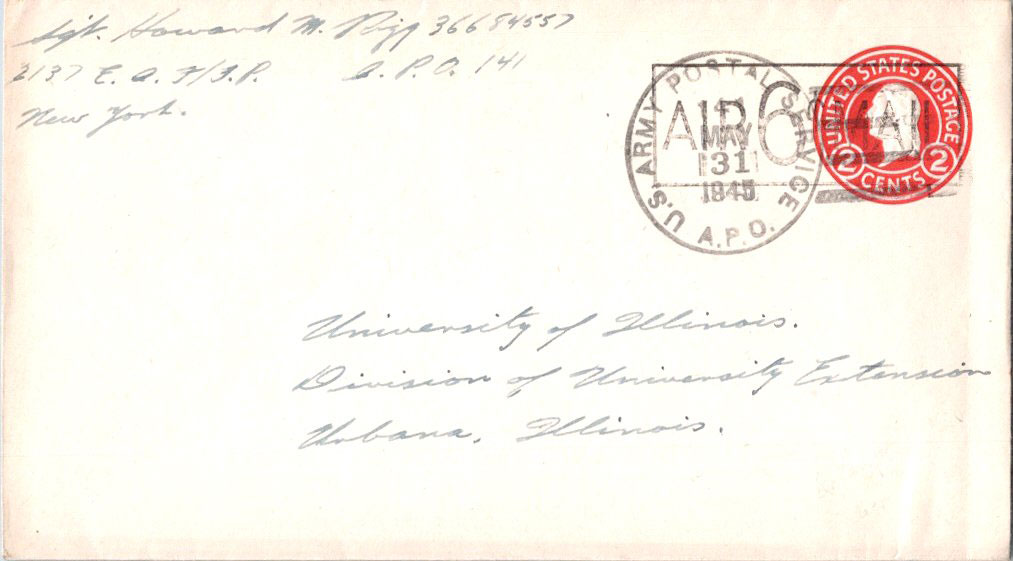 Sgt. Howard M. Rigg 36684557
2137 E. A. F/S.P. A. P. O. 141
New York.
U.S. ARMY POSTAL SERVICE
A.P.O.
MAY
31
1945
AIR 6¢ MAIL
UNITED STATES POSTAGE
2 CENTS 2
University of Illinois.
Division of University Extension
Urbana, Illinois.